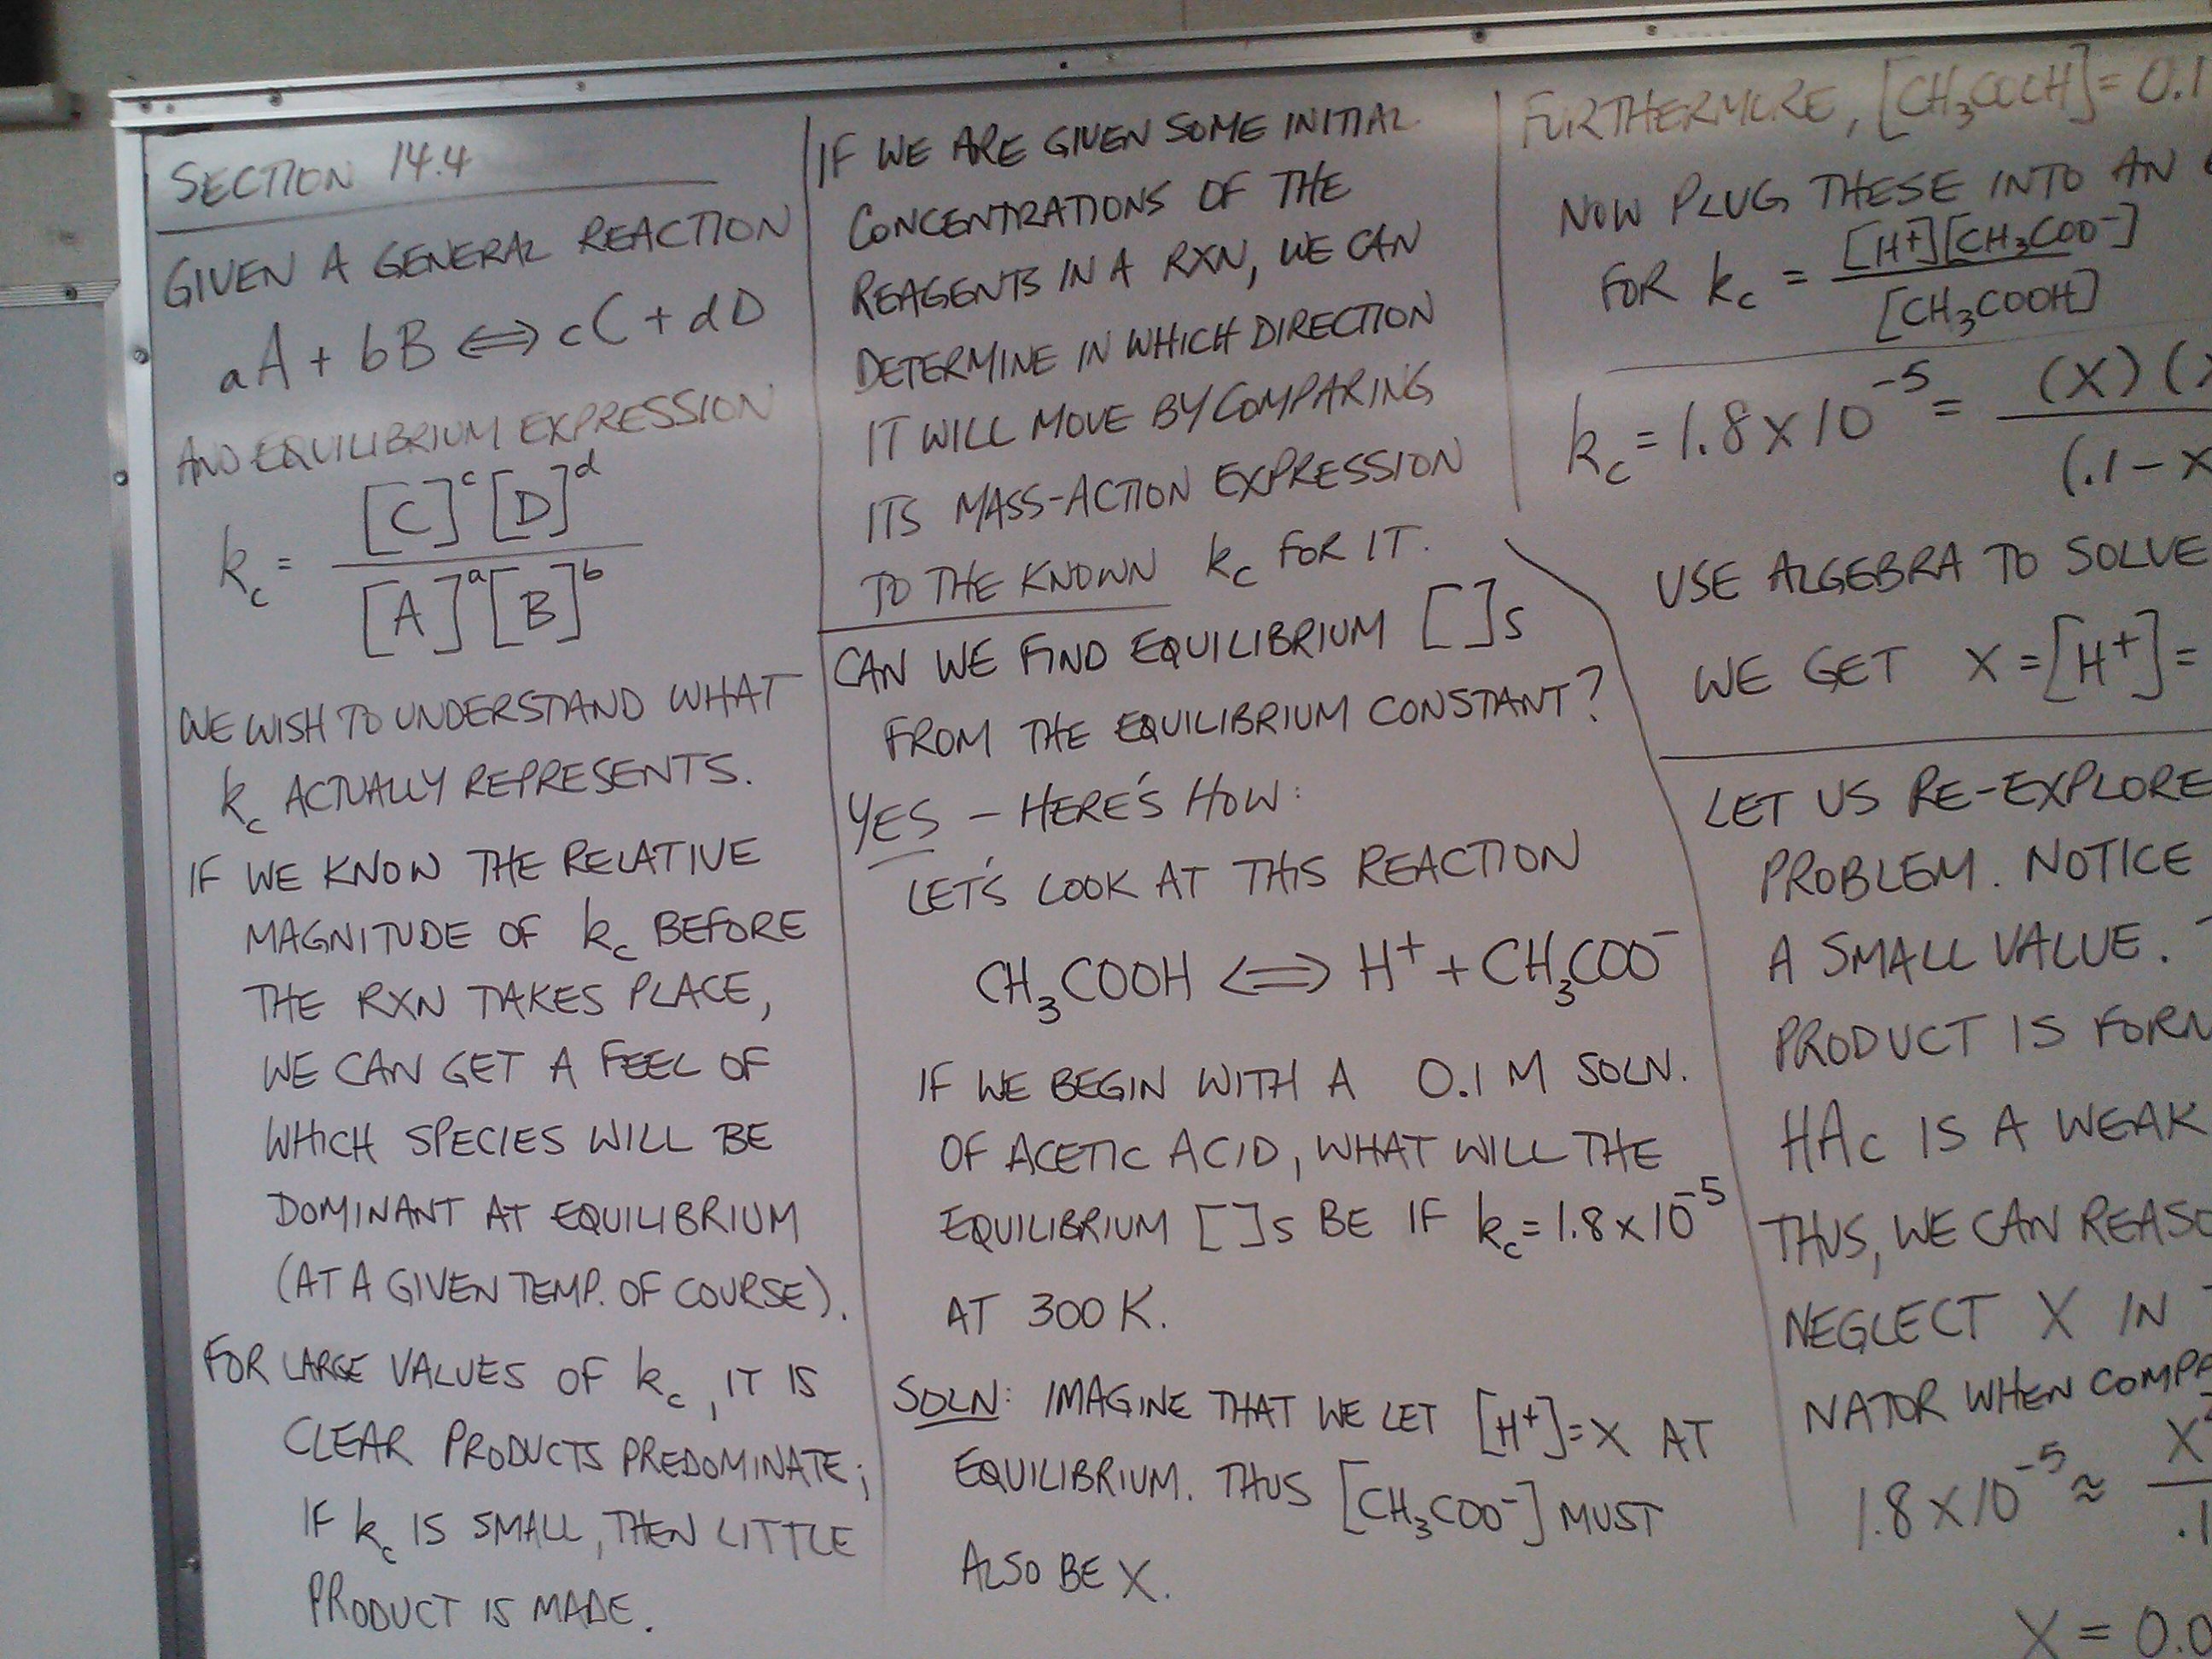 SECTION 14.4
GIVEN A GENERAL REACTION
aA + bB ⟺ cC + dD
AND EQUILIBRIUM EXPRESSION
kc = [C]^c [D]^d / [A]^a [B]^b
WE WISH TO UNDERSTAND WHAT
kc ACTUALLY REPRESENTS.
IF WE KNOW THE RELATIVE
MAGNITUDE OF kc BEFORE
THE RXN TAKES PLACE,
WE CAN GET A FEEL OF
WHICH SPECIES WILL BE
DOMINANT AT EQUILIBRIUM
(AT A GIVEN TEMP. OF COURSE).
FOR LARGE VALUES OF kc, IT IS
CLEAR PRODUCTS PREDOMINATE;
IF kc IS SMALL, THEN LITTLE
PRODUCT IS MADE.
IF WE ARE GIVEN SOME INITIAL
CONCENTRATIONS OF THE
REAGENTS IN A RXN, WE CAN
DETERMINE IN WHICH DIRECTION
IT WILL MOVE BY COMPARING
ITS MASS-ACTION EXPRESSION
TO THE KNOWN kc FOR IT.
CAN WE FIND EQUILIBRIUM [ ]s
FROM THE EQUILIBRIUM CONSTANT?
YES – HERE'S HOW:
LET'S LOOK AT THIS REACTION
CH₃COOH ⟺ H⁺ + CH₃COO⁻
IF WE BEGIN WITH A 0.1 M SOLN.
OF ACETIC ACID, WHAT WILL THE
EQUILIBRIUM [ ]s BE IF kc = 1.8 x 10⁻⁵
AT 300 K.
SOLN: IMAGINE THAT WE LET [H⁺]=X AT
EQUILIBRIUM. THUS [CH₃COO⁻] MUST
ALSO BE X.
FURTHERMORE, [CH₃COOH] = 0.1
NOW PLUG THESE INTO AN
FOR kc = [H⁺][CH₃COO⁻] / [CH₃COOH]
kc = 1.8 x 10⁻⁵ = (X) ( / (.1 – X
USE ALGEBRA TO SOLVE
WE GET X = [H⁺] =
LET US RE-EXPLORE
PROBLEM. NOTICE
A SMALL VALUE.
PRODUCT IS FORM
HAc IS A WEAK
THUS, WE CAN REASO
NEGLECT X IN
NATOR WHEN COMPA
1.8 x 10⁻⁵ ≈ X² / .1
X = 0.0